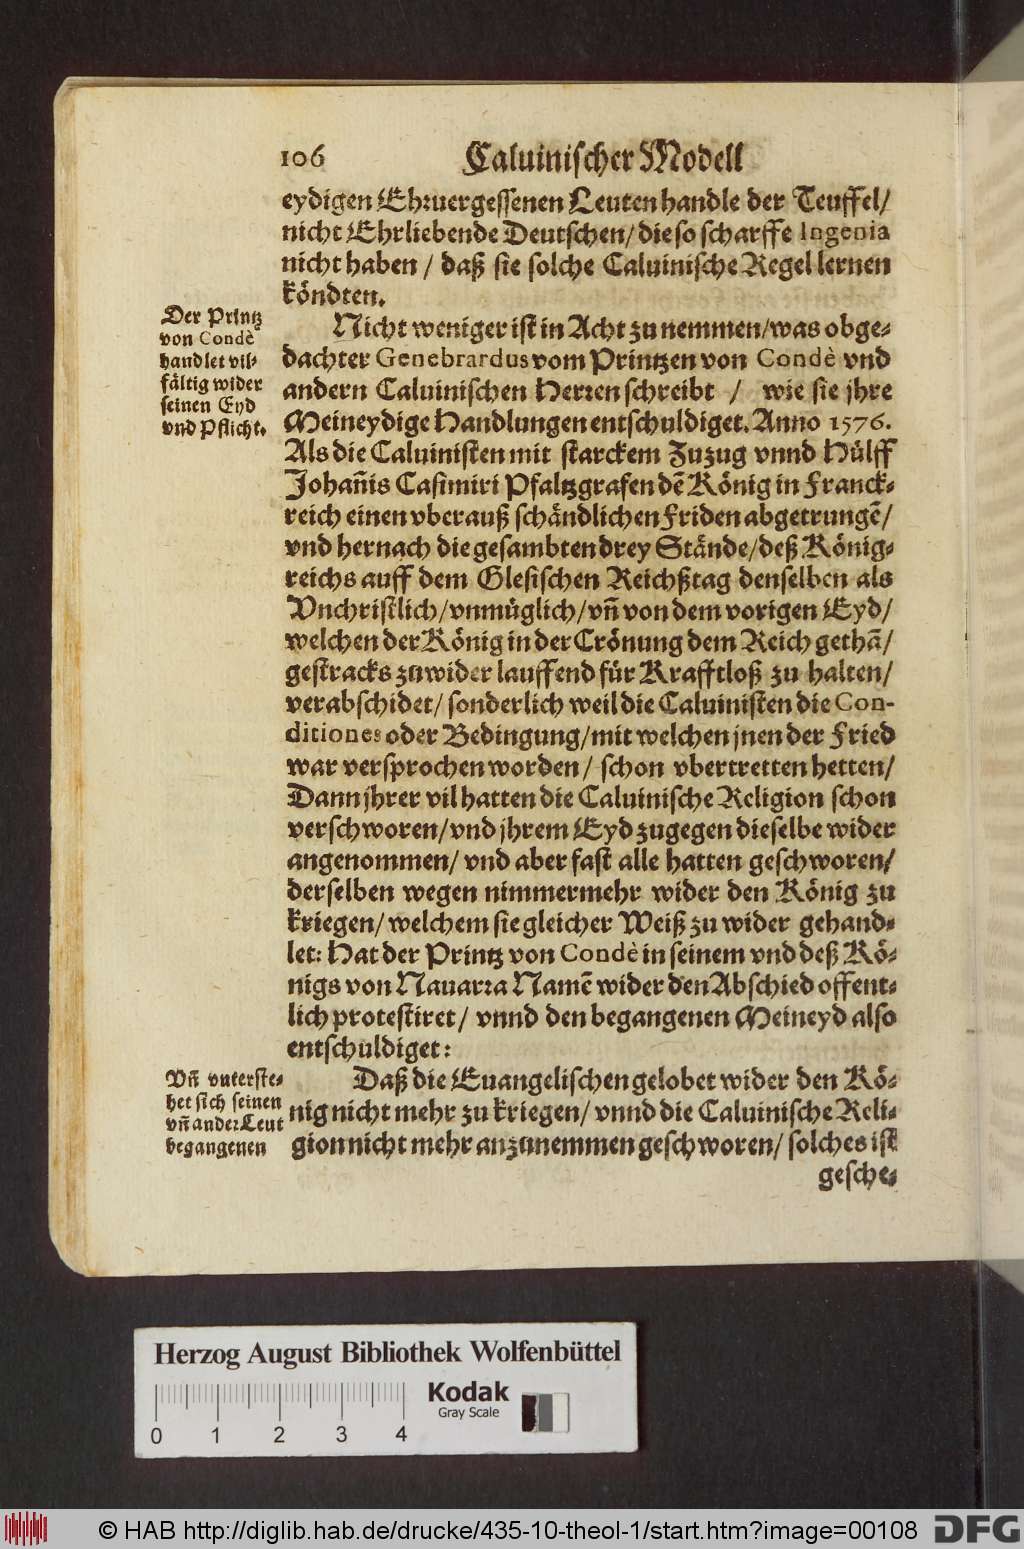 106 Caluinischer Modell
eydigen Ehruergessenen Leuten handle der Teuffel/
nicht Ehrliebende Deutschen/ die so scharffe Ingenia
nicht haben / daß sie solche Caluinische Regel lernen
köndten.
Der Printz
von Condè
handlet vil-
fältig wider
seinen Eyd
vnd Pflicht.
Nicht weniger ist in Acht zu nemmen/ was obge-
dachter Genebrardus vom Printzen von Condè vnd
andern Caluinischen Herren schreibt / wie sie jhre
Meineydige Handlungen entschuldiget. Anno 1576.
Als die Caluinisten mit starckem Zuzug vnnd Hülff
Johañis Casimiri Pfaltzgrafen dē König in Franck-
reich einen vberauß schändlichen Friden abgetrungē/
vnd hernach die gesambten drey Stände/ deß König-
reichs auff dem Glesischen Reichßtag denselben als
Vnchristlich/ vnmüglich/ vñ von dem vorigen Eyd/
welchen der König in der Crönung dem Reich gethā/
gestracks zuwider lauffend für Krafftloß zu halten/
verabschidet/ sonderlich weil die Caluinisten die Con-
ditiones oder Bedingung/ mit welchen jnen der Fried
war versprochen worden/ schon vbertretten hetten/
Dann jhrer vil hatten die Caluinische Religion schon
verschworen/ vnd jhrem Eyd zugegen dieselbe wider
angenommen/ vnd aber fast alle hatten geschworen/
derselben wegen nimmermehr wider den König zu
kriegen/ welchem sie gleicher Weiß zu wider gehand-
let: Hat der Printz von Condè in seinem vnd deß Kö-
nigs von Nauarra Namē wider den Abschied offent-
lich protestiret/ vnnd den begangenen Meineyd also
entschuldiget:
Vñ vnterste-
het sich seinen
vñ ander Leut
begangenen
Daß die Euangelischen gelobet wider den Kö-
nig nicht mehr zu kriegen/ vnnd die Caluinische Reli-
gion nicht mehr anzunemmen geschworen/ solches ist
gesche-
Herzog August Bibliothek Wolfenbüttel
Kodak
Gray Scale
0 1 2 3 4
© HAB http://diglib.hab.de/drucke/435-10-theol-1/start.htm?image=00108
DFG